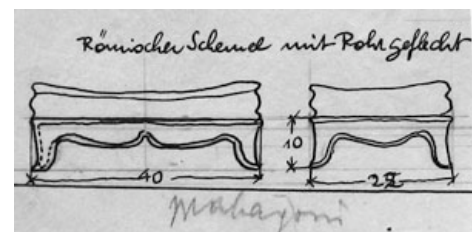 Römischer Schemel mit Rohrgeflecht
10
40
mahagoni